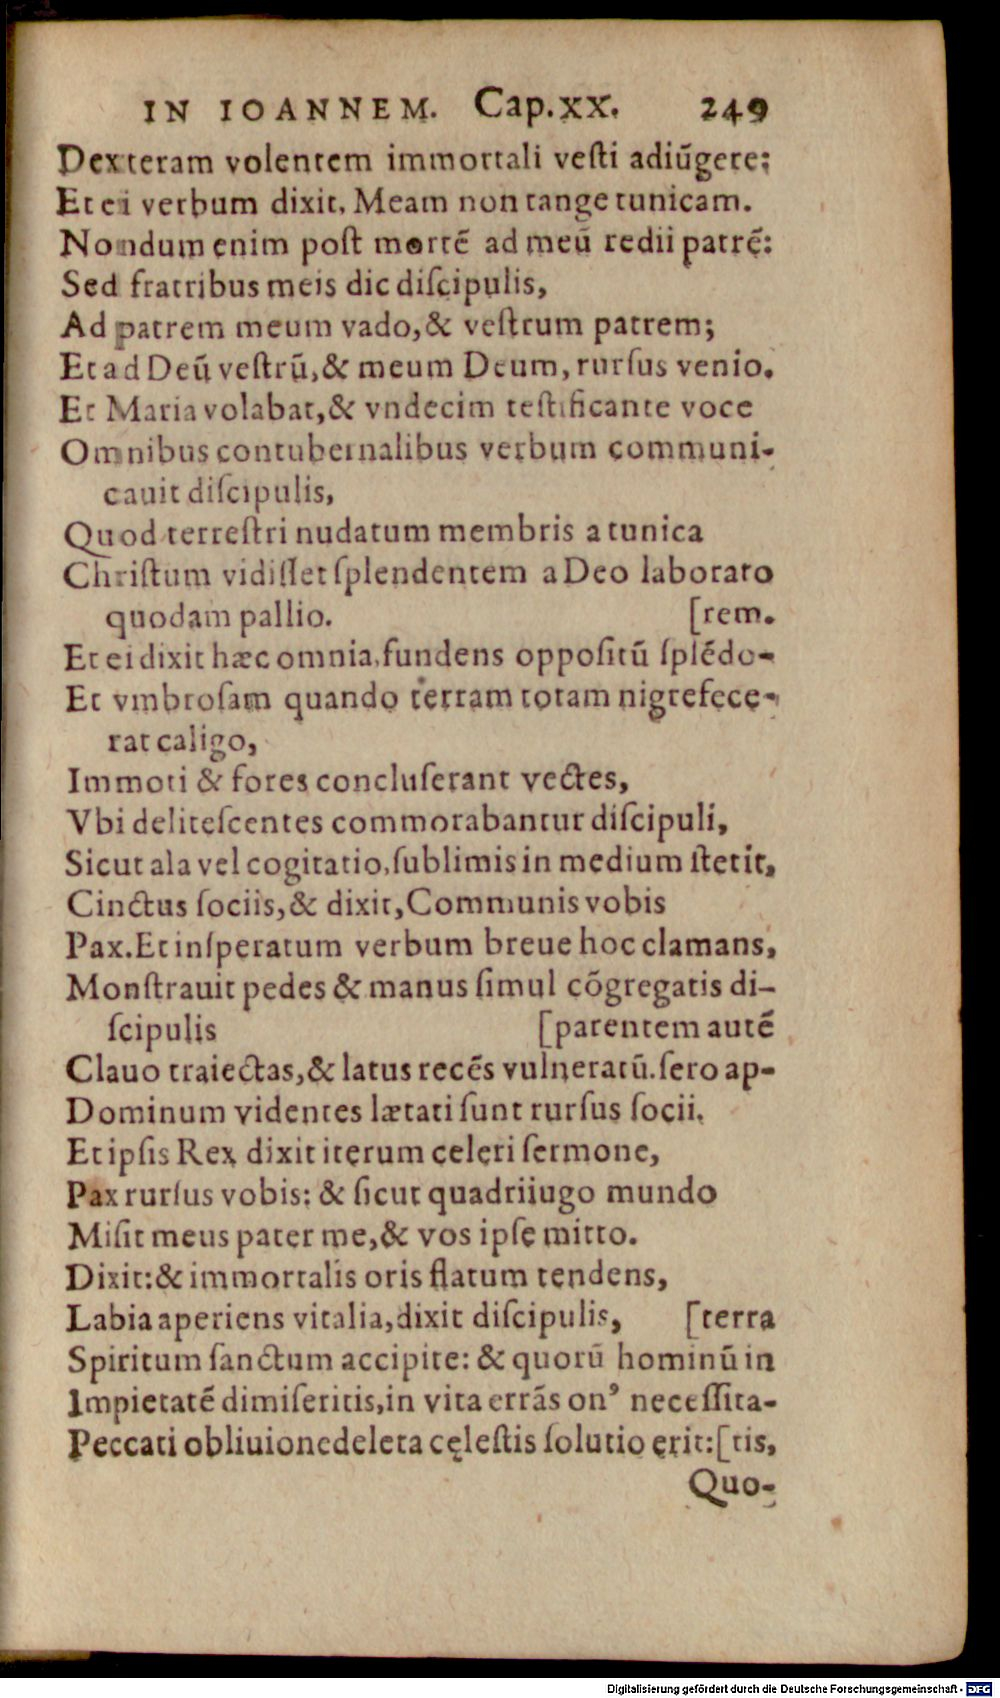 IN IOANNEM. Cap.xx. 249
Dexteram volentem immortali vesti adiũgere:
Et ei verbum dixit, Meam non tange tunicam.
Nondum enim post mortẽ ad meũ redii patrẽ:
Sed fratribus meis dic discipulis,
Ad patrem meum vado, & vestrum patrem;
Et ad Deũ vestrũ, & meum Deum, rursus venio.
Et Maria volabat, & vndecim testificante voce
Omnibus contubernalibus verbum communi-
cauit discipulis,
Quod terrestri nudatum membris a tunica
Christum vidisset splendentem a Deo laborato
quodam pallio. [rem.
Et ei dixit hæc omnia, fundens oppositũ splẽdo-
Et vmbrosam quando terram totam nigrefece-
rat caligo,
Immoti & fores concluserant vectes,
Vbi delitescentes commorabantur discipuli,
Sicut ala vel cogitatio, sublimis in medium stetit,
Cinctus sociis, & dixit, Communis vobis
Pax. Et insperatum verbum breue hoc clamans,
Monstrauit pedes & manus simul cõgregatis di-
scipulis [parentem autẽ
Clauo traiectas, & latus recẽs vulneratũ. sero ap-
Dominum videntes lætati sunt rursus socii.
Et ipsis Rex dixit iterum celeri sermone,
Pax rursus vobis: & sicut quadriiugo mundo
Misit meus pater me, & vos ipse mitto.
Dixit: & immortalis oris flatum tendens,
Labia aperiens vitalia, dixit discipulis, [terra
Spiritum sanctum accipite: & quorũ hominũ in
Impietatẽ dimiseritis, in vita errãs onꝰ necessita-
Peccati obliuione deleta cęlestis solutio erit: [tis,
Quo-
Digitalisierung gefördert durch die Deutsche Forschungsgemeinschaft - DFG